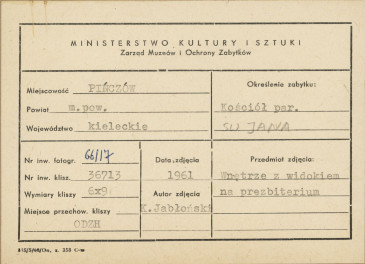 MINISTERSTWO KULTURY I SZTUKI
Zarząd Muzeów i Ochrony Zabytków
Miejscowość PIŃCZÓW
Powiat m.pow.
Województwo kieleckie
Określenie zabytku:
Kościół par.
SW JANA
Nr inw. fotogr. 66/17
Nr inw. klisz. 36713
Wymiary kliszy 6x9
Miejsce przechow. kliszy
ODZH
Data zdjęcia
1961
Autor zdjęcia
K.Jabłoński
Przedmiot zdjęcia:
Wnętrze z widokiem
na prezbiterium